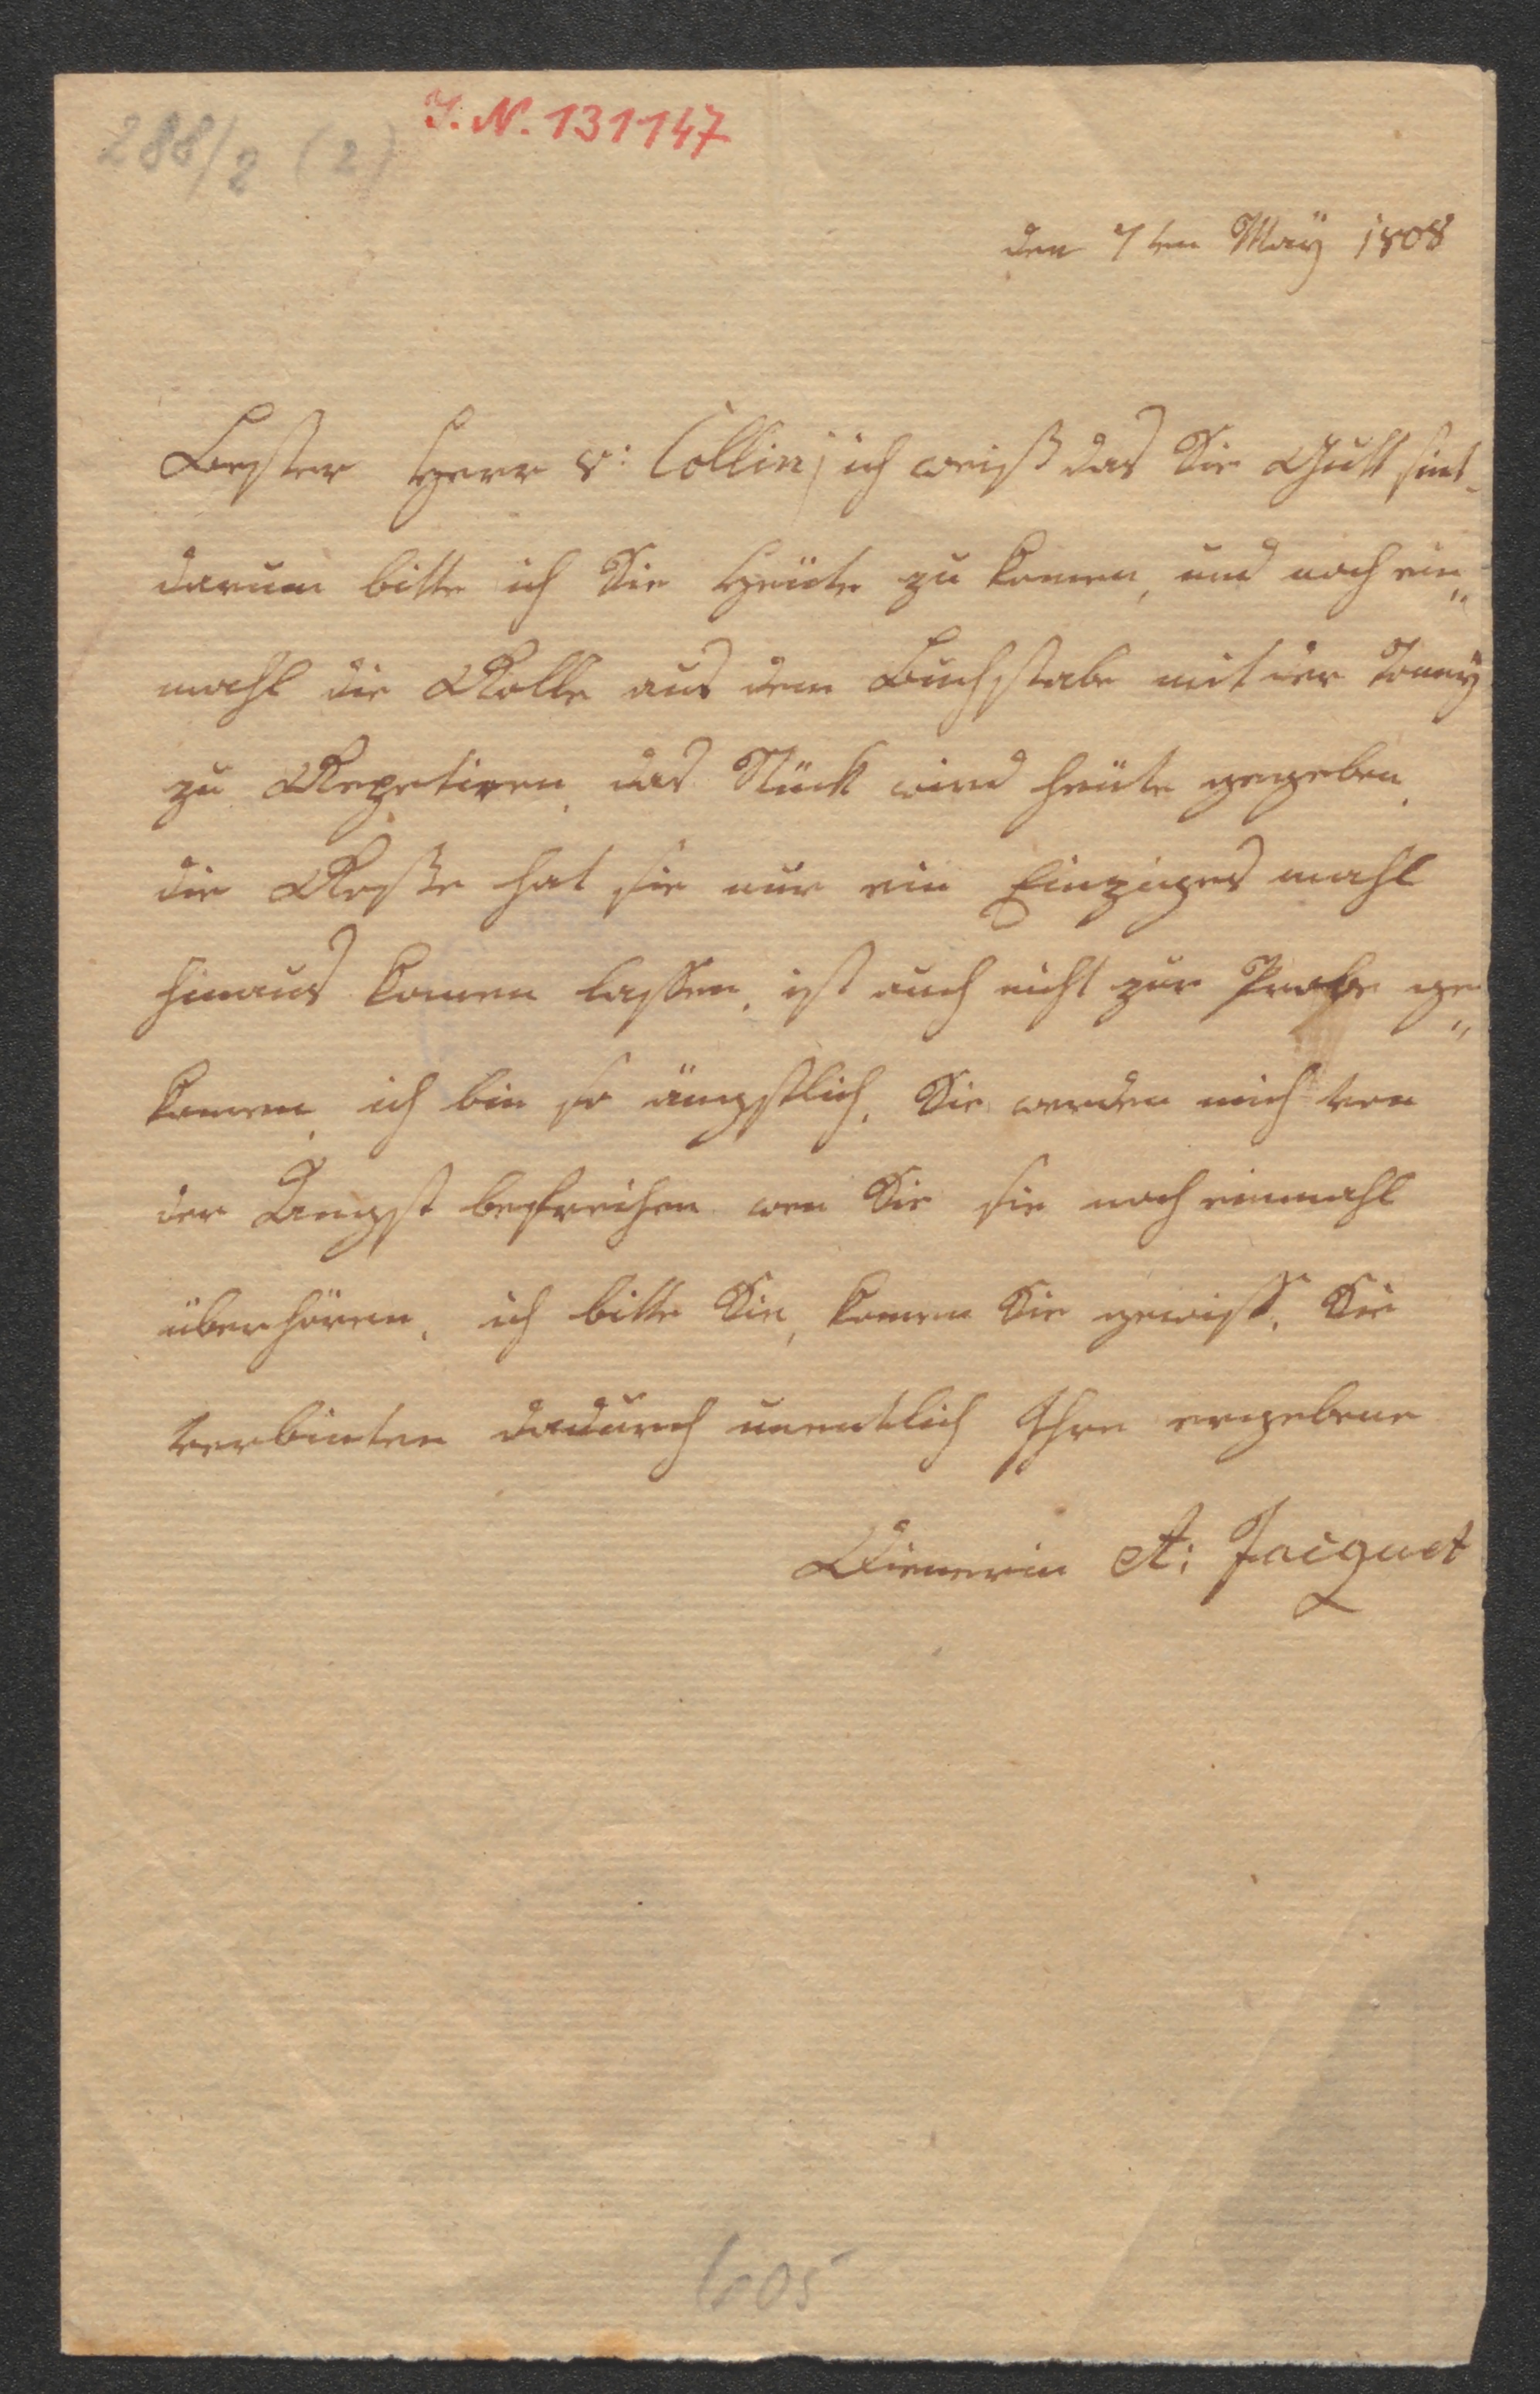 288/2 (2)
I. N. 131147
den 7ten Maÿ 1808
Bester Herr v: Collin; ich weiß das Sie Gutt sint
darum bitte ich Sie Heüte zu komen, und noch ein„
mahl die Rolle aus dem Buchstabe mit der Tony
zu Repetiren, das Stück wird heüte gegeben,
die Roße hat sie nur ein Einziges mahl
hinaus komen lassen, ist auch nicht zur Probe ge„
komen, ich bin so ängstlich, Sie werden mich von
der Angst befreihen wen Sie sie noch einmahl
überhören, ich bitte Sie, komen Sie gewiß, Sie
verbinten dadurch unentlich Ihre ergebene
Dienerin A: Jacquet
605